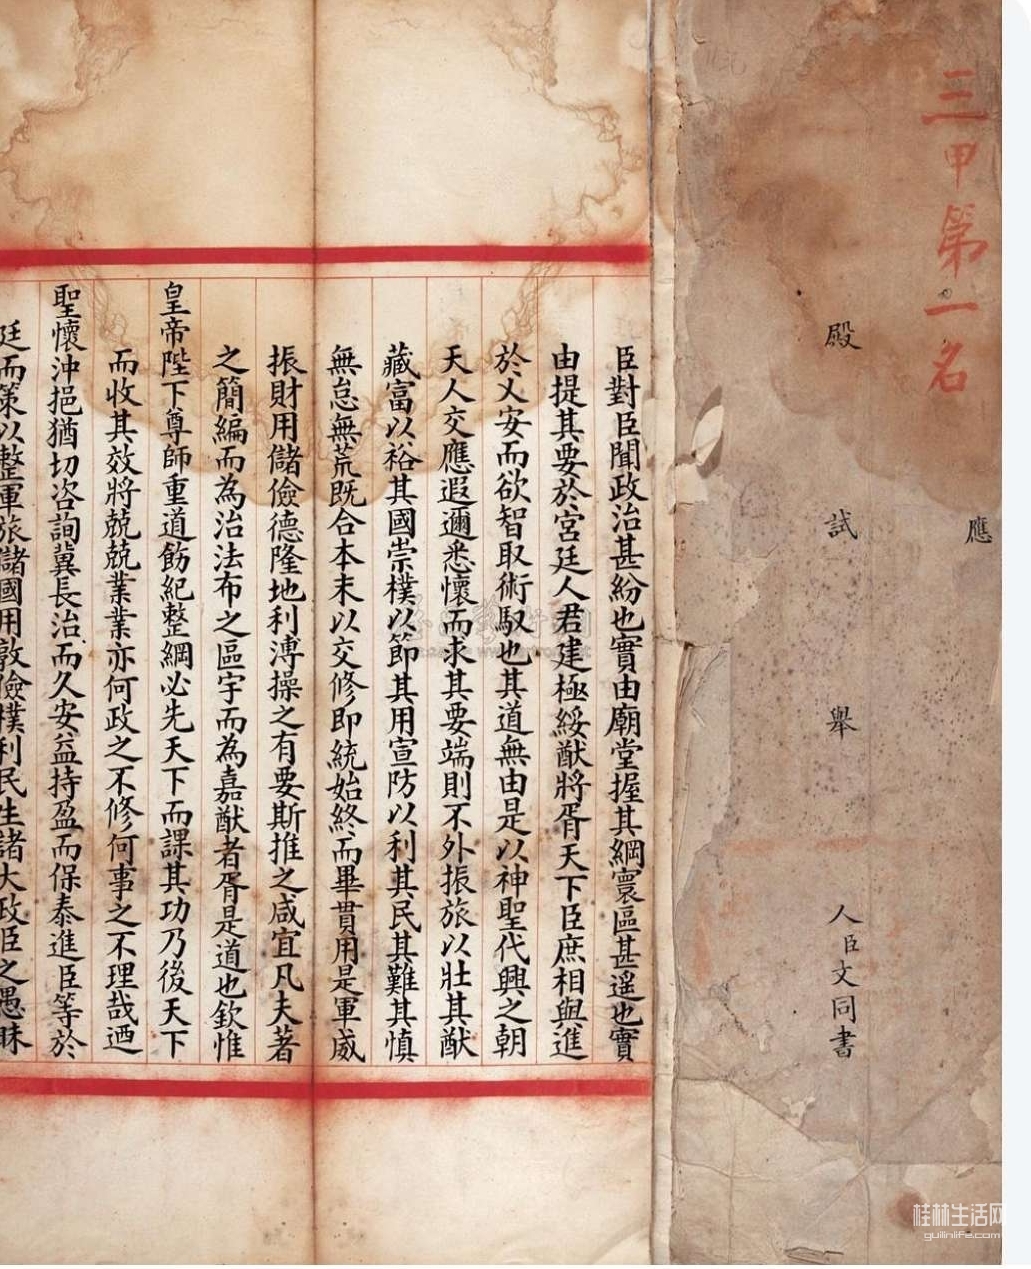 三甲第一名
應
殿試舉人臣文同書
臣對臣聞政治甚紛也實由廟堂握其綱寰區甚遥也實
由提其要於宮廷人君建極綏猷將胥天下臣庶相與進
於乂安而欲智取術馭也其道無由是以神聖代興之朝
天人交應遐邇悉懷而求其要端則不外振旅以壯其猷
藏富以裕其國崇樸以節其用宣防以利其民其難其慎
無怠無荒既合本末以交修即統始終而畢貫用是軍威
振財用儲儉德隆地利溥操之有要斯推之咸宜凡夫著
之簡編而為治法布之區宇而為嘉猷者胥是道也欽惟
皇帝陛下尊師重道飭紀整綱必先天下而課其功乃後天下
而收其效將兢兢業業亦何政之不修何事之不理哉迺
聖懷沖挹猶切咨詢冀長治而久安益持盈而保泰進臣等於
廷而策以整軍旅儲國用敦儉樸利民生諸大政臣之愚昧
桂林生活网
guilinlife.com